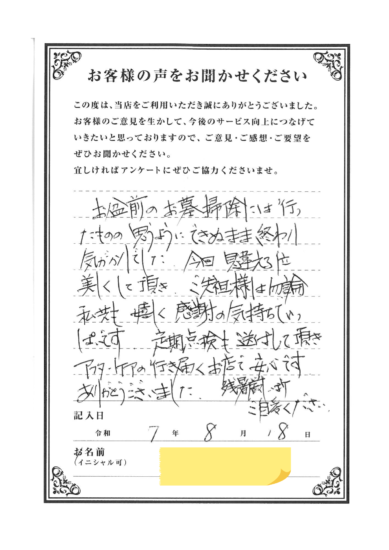 お客様の声をお聞かせください
この度は、当店をご利用いただき誠にありがとうございました。
お客様のご意見を生かして、今後のサービス向上につなげて
いきたいと思っておりますので、ご意見・ご感想・ご要望を
ぜひお聞かせください。
宜しければアンケートにぜひご協力くださいませ。
お盆前のお墓掃除には行っ
たものの 思うようにできぬまま終わり
気がかりでした 今回 見違える位
美しくして頂き ご先祖様は勿論
私共も 嬉しく 感謝の気持ちいっ
ぱいです 定期点検も 送付して頂き
アフターケアの行き届くお店で 安心です
ありがとうございました 残暑
ご自愛ください
記入日
令和 7 年 8 月 18 日
お名前
(イニシャル可)